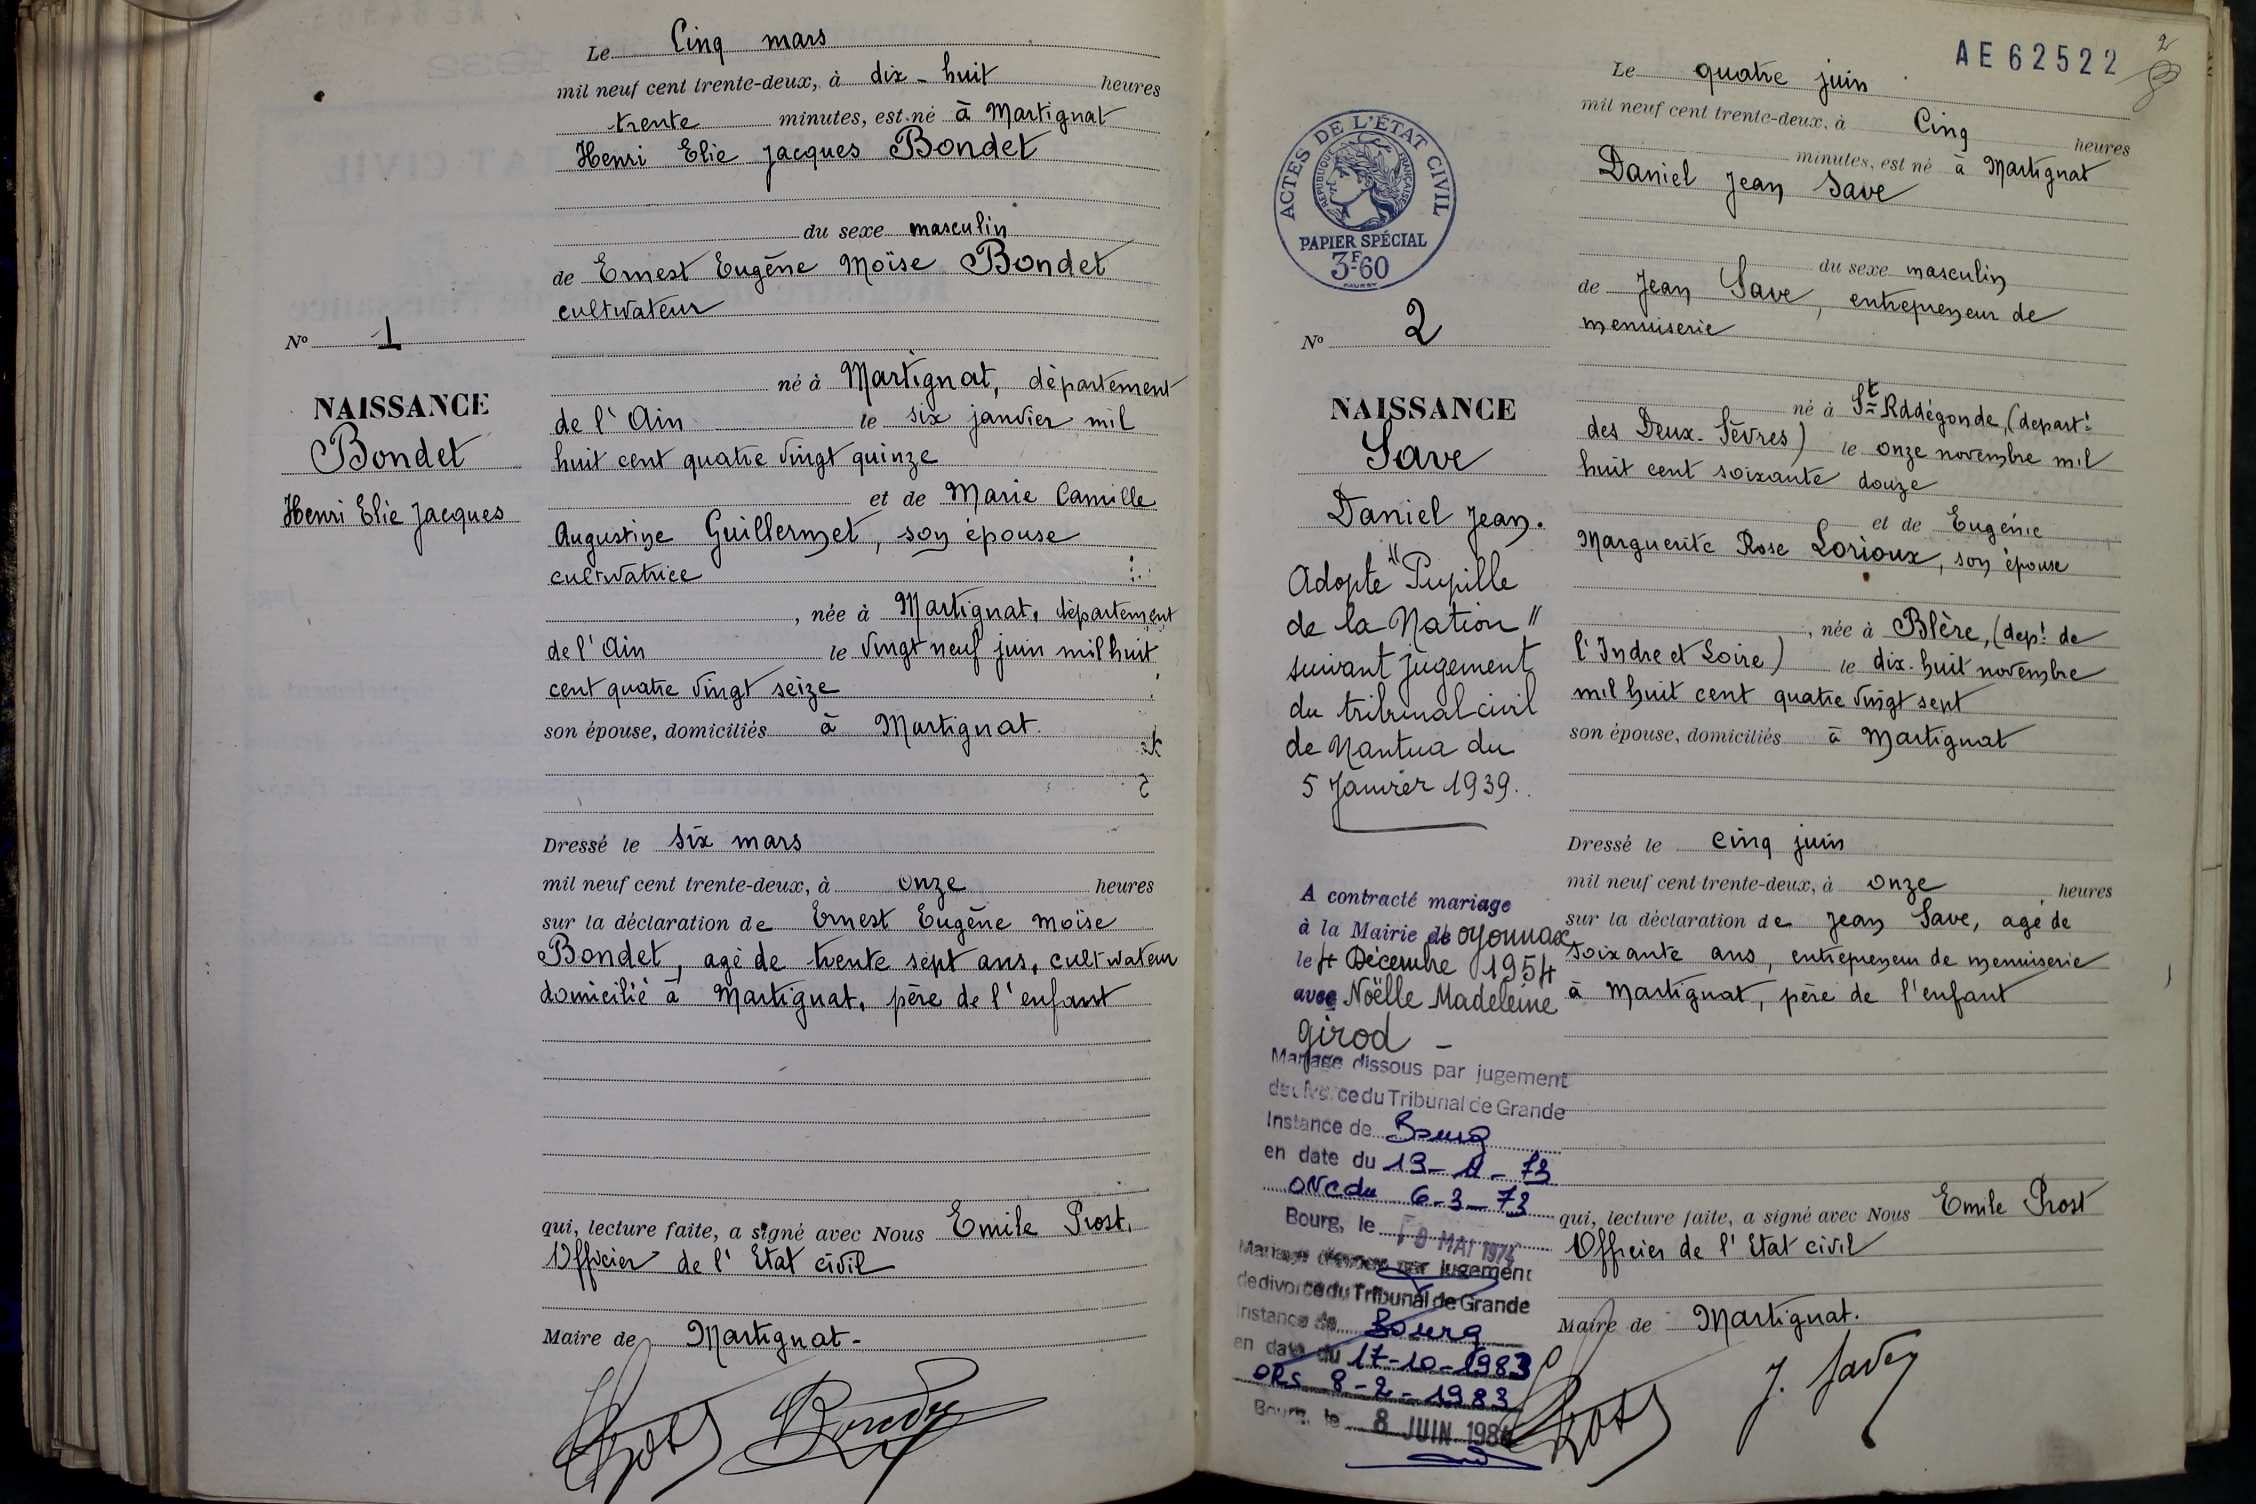 Le Cinq mars
mil neuf cent trente-deux, à dix-huit heures
trente minutes, est né à Martignat
Henri Elie Jacques Bondet
du sexe masculin
de Ernest Eugène Moïse Bondet
cultivateur
né à Martignat, département
de l'Ain le six janvier mil
huit cent quatre vingt quinze
et de Marie Camille
Augustine Guillermet, son épouse
cultivatrice
, née à Martignat, département
de l'Ain le vingt neuf juin mil huit
cent quatre vingt seize
son épouse, domiciliés à Martignat.
Dressé le six mars
mil neuf cent trente-deux, à onze heures
sur la déclaration de Ernest Eugène Moïse
Bondet, agé de trente sept ans, cultivateur
domicilié à Martignat, père de l'enfant
qui, lecture faite, a signé avec Nous Emile Prost,
Officier de l'Etat civil
Maire de Martignat-
No 1
NAISSANCE
Bondet
Henri Elie Jacques
AE 62522
2
Le quatre juin
mil neuf cent trente-deux, à Cinq heures
minutes, est né à Martignat
Daniel Jean Save
du sexe masculin
de Jean Save, entrepreneur de
menuiserie
né à St Rddégonde, (depart:
des Deux-Sèvres) le onze novembre mil
huit cent soixante douze
et de Eugénie
Marguerite Rose Lorioux, son épouse
, née à Blère, (dept de
l'Indre et Loire) le dix-huit novembre
mil huit cent quatre vingt sept
son épouse, domiciliés à Martignat
Dressé le cinq juin
mil neuf cent trente-deux, à onze heures
sur la déclaration de Jean Save, agé de
soixante ans, entrepreneur de menuiserie
à Martignat, père de l'enfant
qui, lecture faite, a signé avec Nous Emile Prost
Officier de l'Etat civil
Maire de Martignat.
J. Save
ACTES DE L'ÉTAT CIVIL
RÉPUBLIQUE FRANÇAISE
PAPIER SPÉCIAL
3F60
No 2
NAISSANCE
Save
Daniel Jean.
Adopté "Pupille
de la Nation"
suivant jugement
du tribunal civil
de Nantua du
5 Janvier 1939.
A contracté mariage
à la Mairie de Oyonnax
le 4 Décembre 1954
avec Noëlle Madeleine
Girod -
Mariage dissous par jugement
de divorce du Tribunal de Grande
Instance de Bourg
en date du
6-3-73
Bourg, le MAI 1974
Mariage dissous par jugement
de divorce du Tribunal de Grande
Instance de Bourg
en date du 17-10-1983
8-2-1983
Bourg, le 8 JUIN